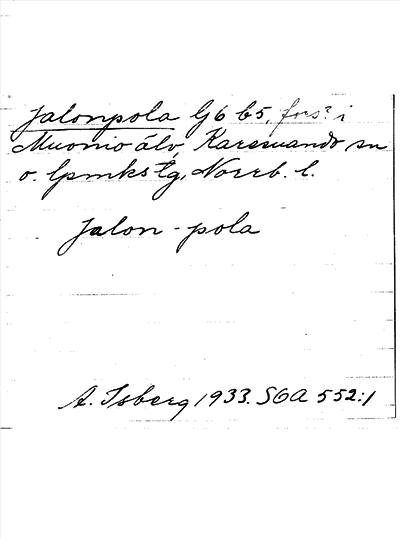 Jalonpola G6 b5, fors? i
Muonio älv, Karesuando sn
o. lpmks tg, Norrb. l.
Jalon - pola
A. Isberg 1933. SOA 552:1